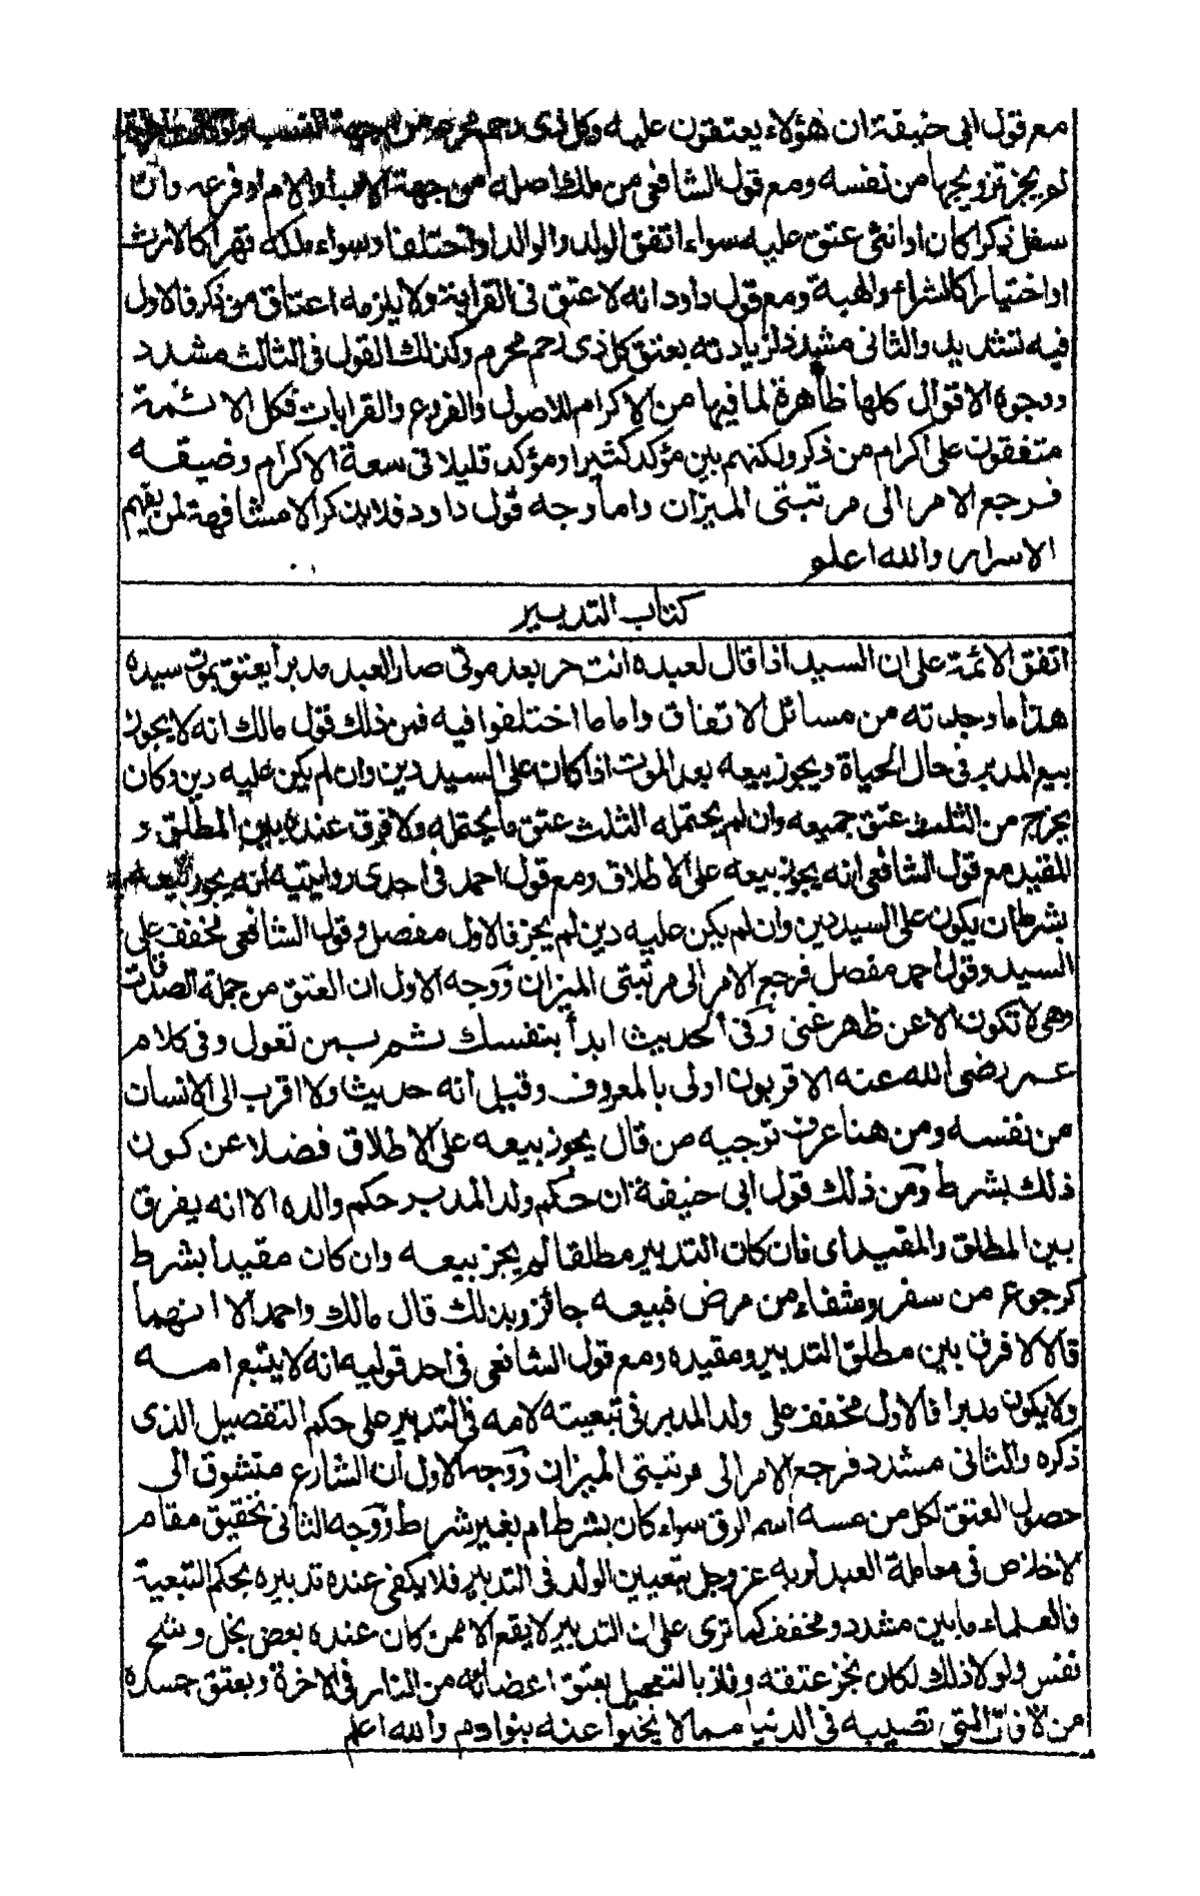 مع قول ابى حنيفة ان هؤلاء يعتقون عليه وكل ذى رحم محرم من جهة النسب
لم يجز تزويجها من نفسه ومع قول الشافعى من ملك اصله من جهة الاب او الام او فرعه وان
سفل ذكرا كان او انثى عتق عليه سواء اتفق الولد والوالد او اختلفا وسواء ملكه قهرا كالارث
او اختيارا كالشراء والهبة ومع قول داود انه لا عتق فى القرابة ولا يلزمه اعتاق من ذكر فالاول
فيه تشديد والثانى مشدد لزيادته بعتق كل ذى رحم محرم وكذلك القول فى الثالث مشدد
ووجوه الاقوال كلها ظاهرة لما فيها من الاكرام للاصول والفروع والقرابات فكل الائمة
متفقون على اكرام من ذكر ولكنهم بين مؤكد كثيرا ومؤكد قليلا فى سعة الاكرام وضيقه
فرجع الامر الى مرتبتى الميزان واما وجه قول داود فلا يذكر الا مشافهة لمن يفهم
الاسرار والله اعلم
كتاب التدبير
اتفق الائمة على ان السيد اذا قال لعبده انت حر بعد موتى صار العبد مدبرا يعتق بموت سيده
هذا ما وجدته من مسائل الاتفاق واما ما اختلفوا فيه فمن ذلك قول مالك انه لا يجوز
بيع المدبر فى حال الحياة ويجوز بيعه بعد الموت اذا كان على السيد دين وان لم يكن عليه دين وكان
يخرج من الثلث عتق جميعه وان لم يحتمله الثلث عتق ما يحتمله ولا فرق عنده بين المطلق و
المقيد مع قول الشافعى انه يجوز بيعه على الاطلاق ومع قول احمد فى احدى روايتيه انه يجوز بيعه
بشرط ان يكون على السيد دين وان لم يكن عليه دين لم يجز فالاول مفصل وقول الشافعى مخفف على
السيد وقول احمد مفصل فرجع الامر الى مرتبتى الميزان ووجه الاول ان العتق من جملة الصدقات
وهى لا تكون الا عن ظهر غنى وفى الحديث ابدأ بنفسك ثم بمن تعول وفى كلام
عمر رضى الله عنه الاقربون اولى بالمعروف وقيل انه حديث ولا اقرب الى الانسان
من نفسه ومن هنا عرف توجيه من قال يجوز بيعه على الاطلاق فضلا عن كون
ذلك بشرط ومن ذلك قول ابى حنيفة ان حكم ولد المدبر حكم والده الا انه يفرق
بين المطلق والمقيد اى فان كان التدبير مطلقا لم يجز بيعه وان كان مقيدا بشرط
كرجوع من سفر وشفاء من مرض فبيعه جائز وبذلك قال مالك واحمد الا انهما
قالا لا فرق بين مطلق التدبير ومقيده ومع قول الشافعى فى احد قوليه انه لا يتبع امه
ولا يكون مدبرا فالاول مخفف على ولد المدبر فى تبعيته لامه فى التدبير على حكم التفصيل الذى
ذكره والثانى مشدد فرجع الامر الى مرتبتى الميزان ووجه الاول ان الشارع متشوق الى
حصول العتق لكل من مسه اسم الرق سواء كان بشرط ام بغير شرط ووجه الثانى تحقيق مقام
الاخلاص فى معاملة العبد لربه عز وجل بتعيين الولد فى التدبير فلا يكفى عنده تدبيره بحكم التبعية
فالعلماء ما بين مشدد ومخفف كما ترى على ان التدبير لا يقع الا ممن كان عنده بعض بخل وشح
نفس ولولا ذلك لكان نجز عتقه وفاز بالتعجيل بعتق اعضائه من النار فى الاخرة وبعتق جسده
من الافات التى تصيبه فى الدنيا مما لا يخلوا عنه بنو ادم والله اعلم